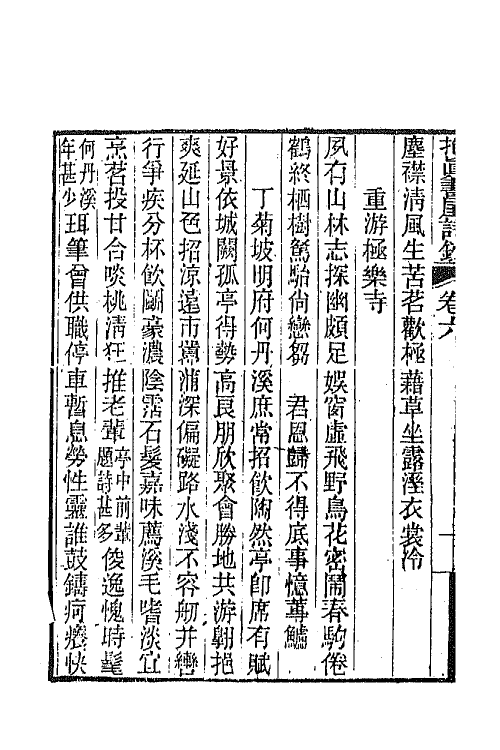 塵襟清風生苦茗歡極藉草坐露溼衣裳冷
重游極樂寺
夙有山林志探幽頗足娛窗虛飛野鳥花密鬧春駒倦
鶴終栖樹駑駘尙戀芻　君恩歸不得底事憶蓴鱸
丁菊坡明府何丹溪庶常招飮陶然亭卽席有賦
好景依城闕孤亭得勢高良朋欣聚會勝地共游翺挹
爽延山色招涼遠市囂浦深偏礙路水淺不容舠并轡
行爭疾分杯飮鬭豪濃陰霑石髮嘉味薦溪毛嗜淡宜
烹茗投甘合啖桃淸狂推老輩亭中前輩題詩甚多俊逸愧時髦
何丹溪年甚少珥筆曾供職停車暫息勞性靈誰鼓鑄疴癢快
卷六